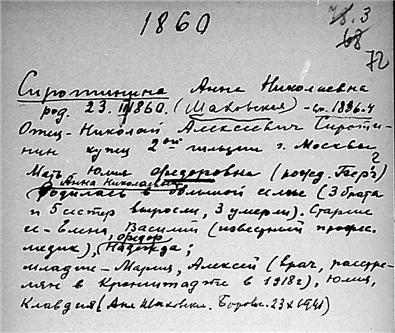 1860
78.3
68
72
Сиротинина Анна Николаевна
род. 23.II.1860. (Маковская) - 1896.
Отец - Николай Алексеевич Сироти-
нин купец 2ой гильдии г. Москвы
Мать Юлия Федоровна (
Анна Николаевна
родилась в большой семье (3 брата
и 5 сестер выросли, 3 умерли). Старше
ее - Елена, Василий (известный профес.
Федор
медик), Надежда;
младше - Мария, Алексей (врач, расстре-
лян в Кронштадте в 1918г), Юлия,
Клавдия (Анн. 23 X 1941)